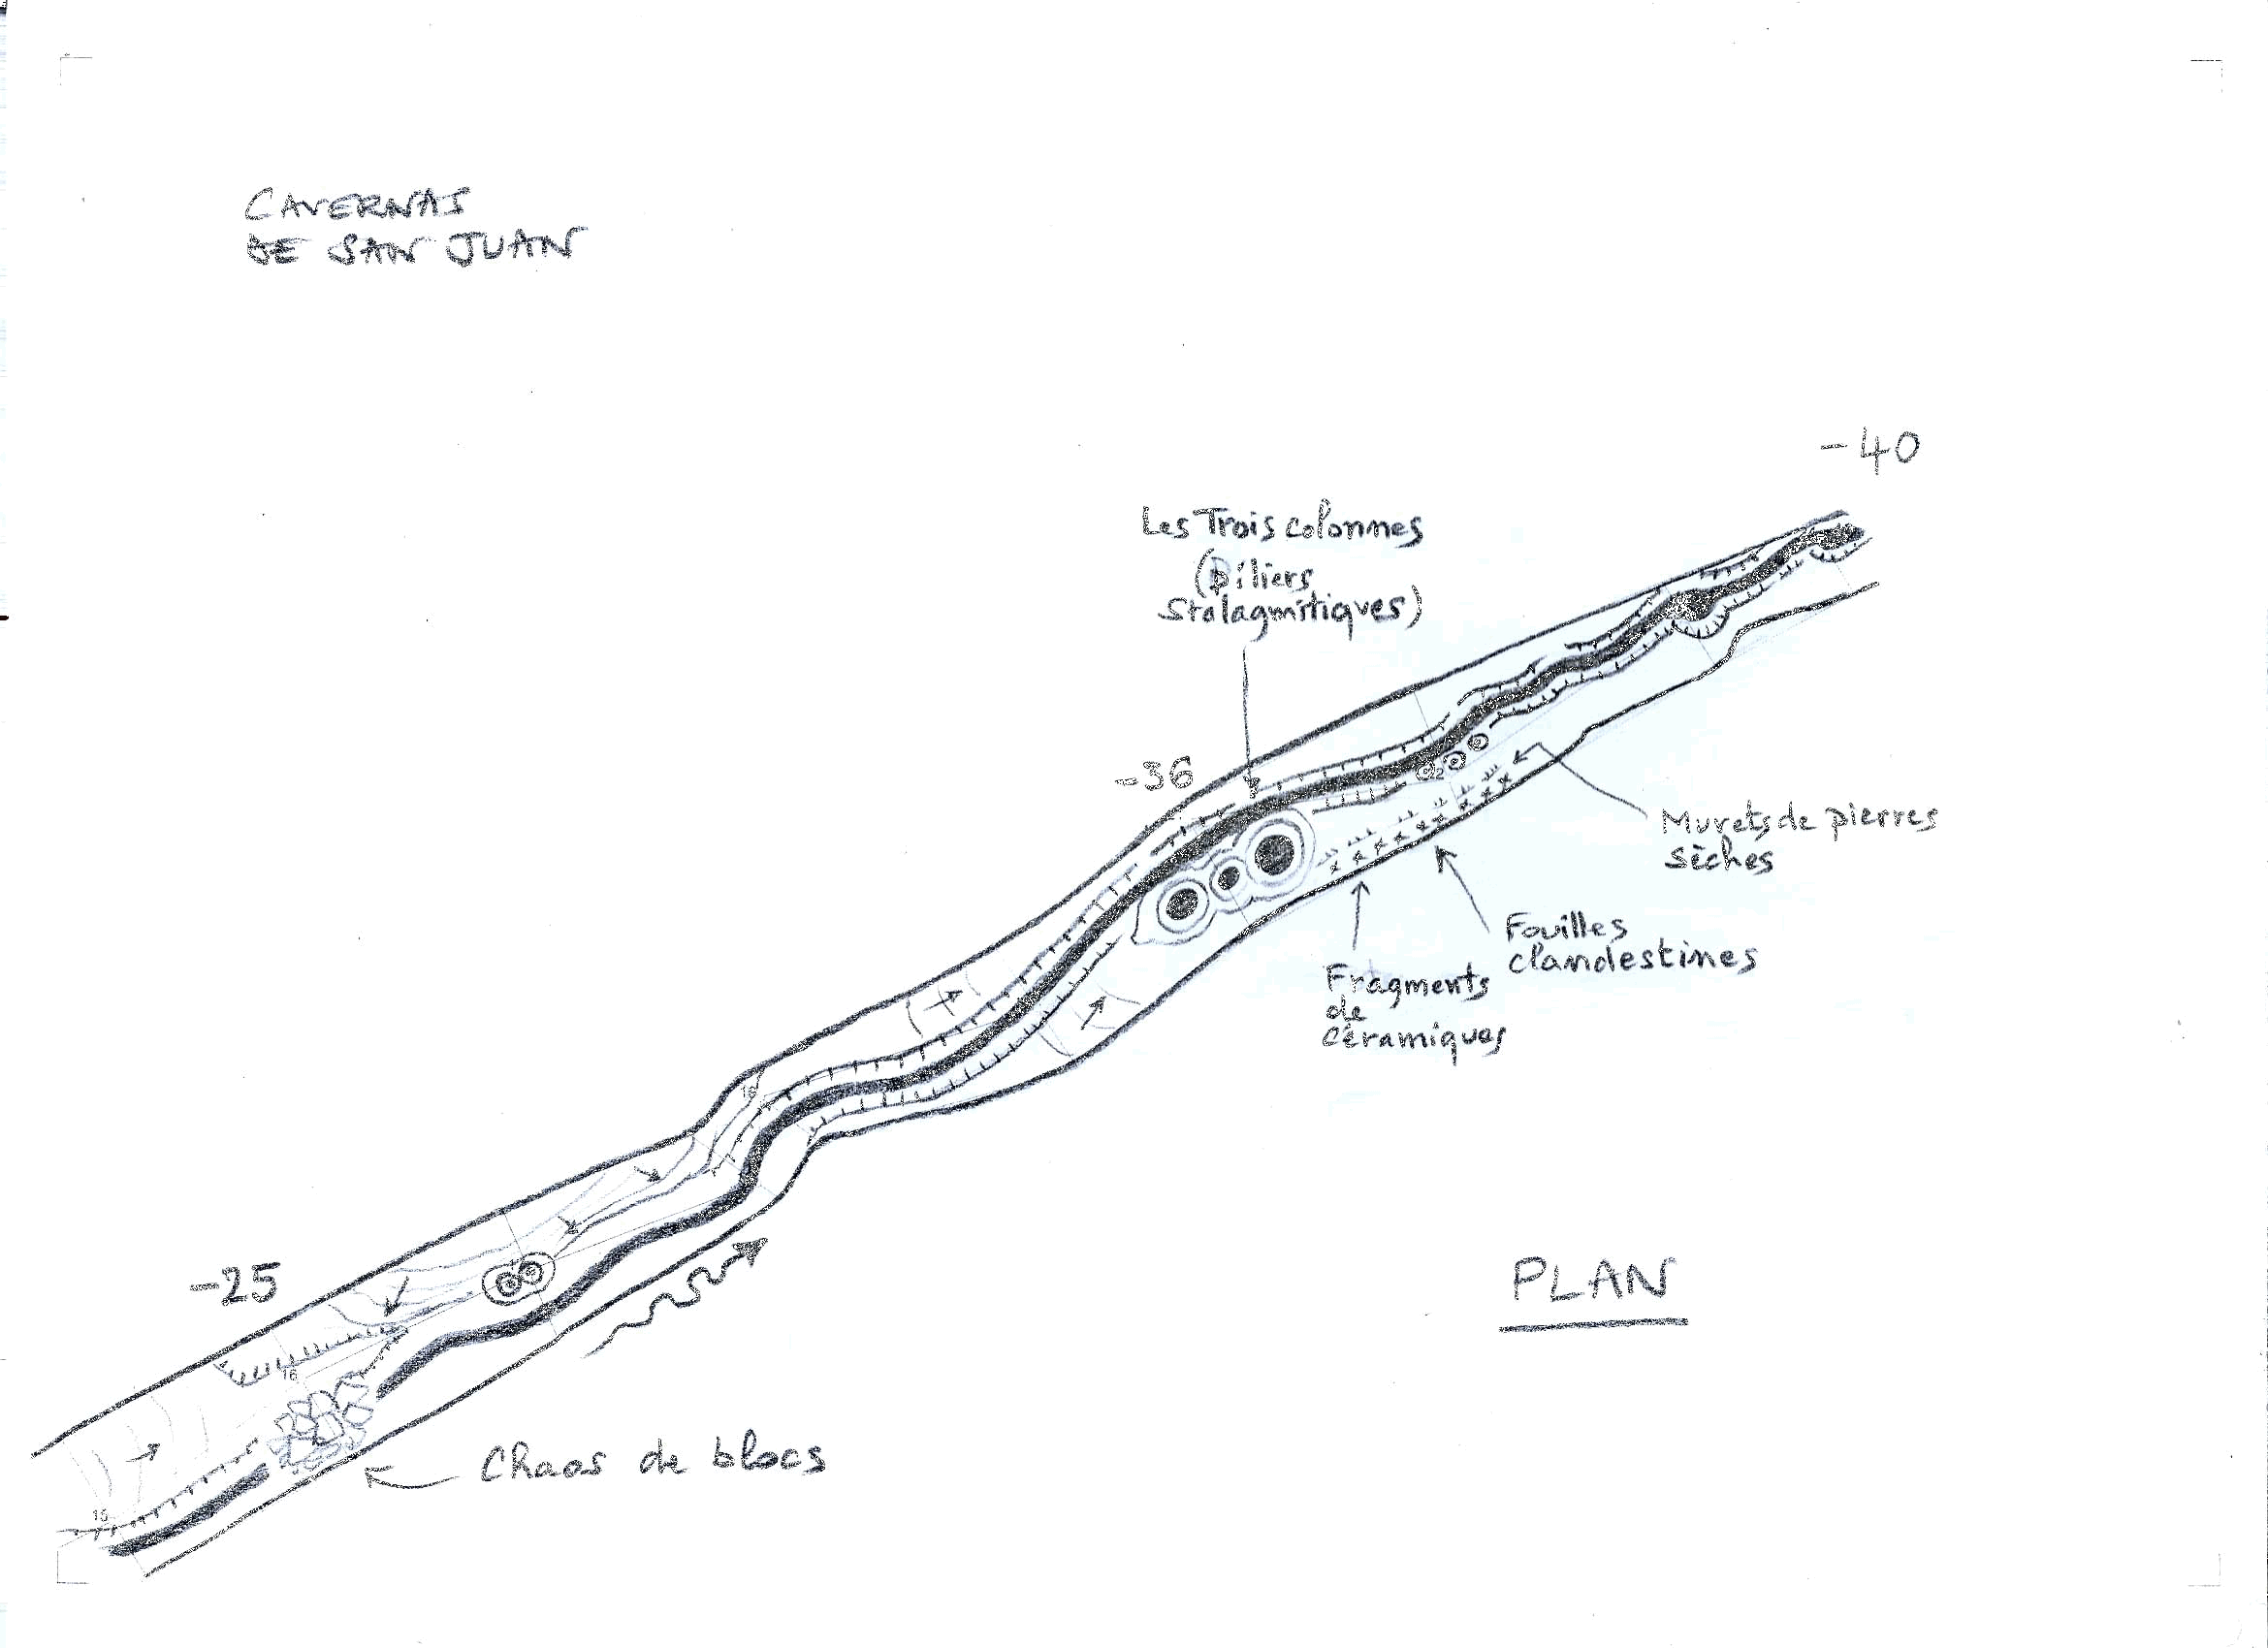 CAVERNAS
DE SAN JUAN
-40
Les Trois colonnes
(Piliers
Stalagmitiques)
-36
Murets de pierres
sèches
Fouilles
clandestines
Fragments
de
céramiques
-25
PLAN
Chaos de blocs